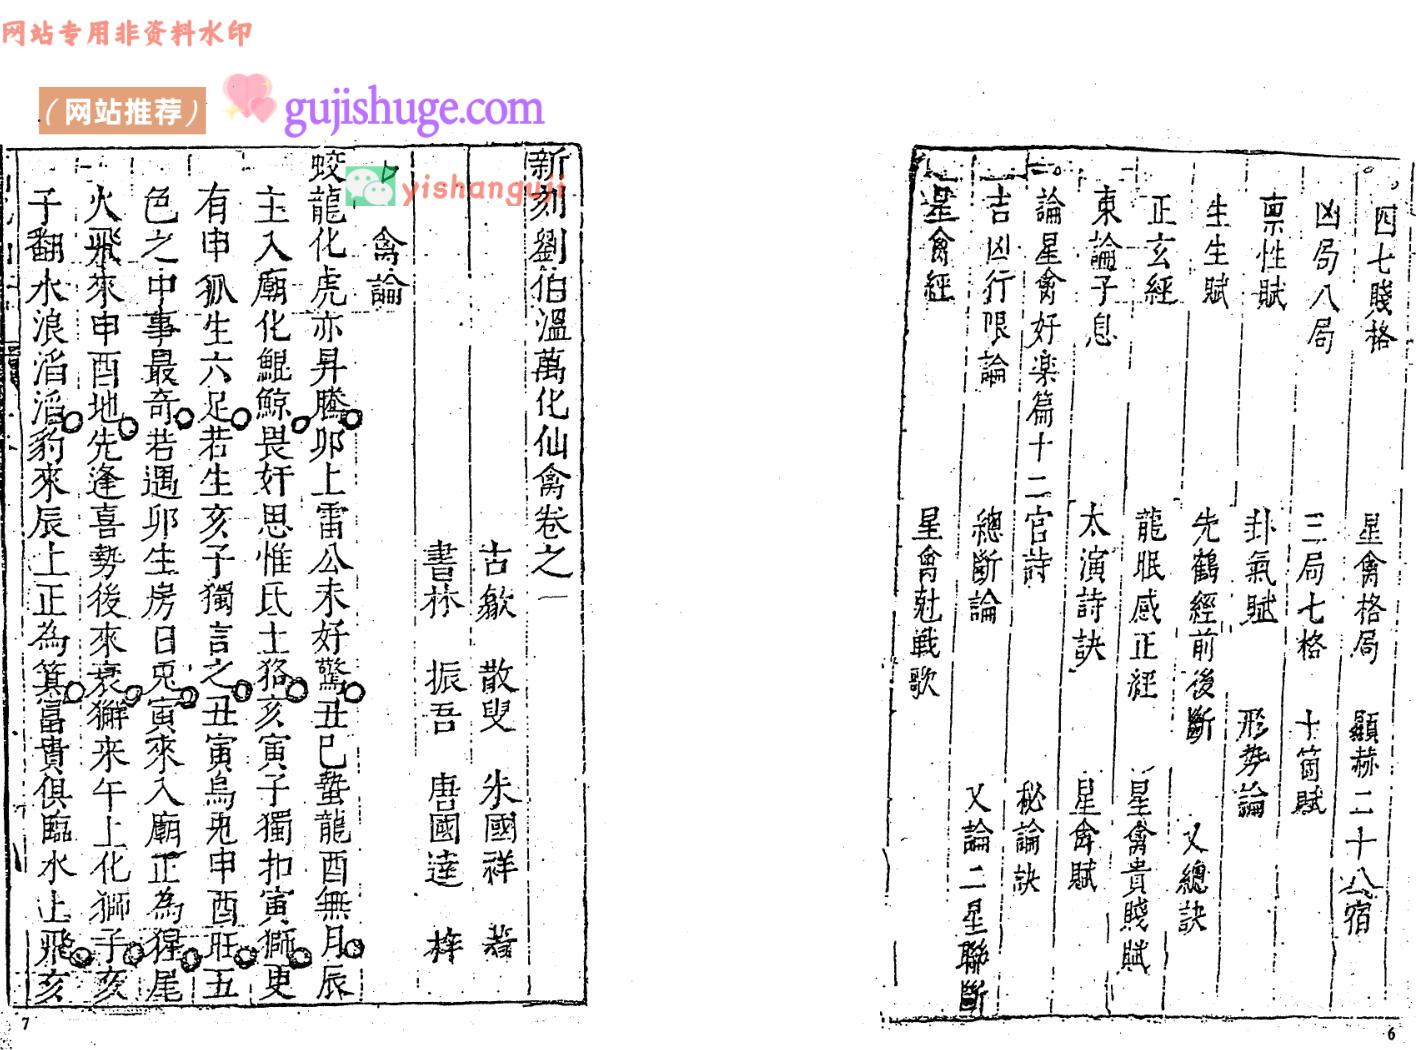 网站专用非资料水印
（网站推荐）
gujishuge.com
yishanguji
四七賤格　星禽格局　顯赫二十八宿
凶局八局　三局七格　十箇賦
禀性賦　卦氣賦　形势論
生生賦　先鶴經前後斷　又總訣
正玄經　龍眠感正経　星禽貴賤賦
東論子息　太演詩訣　星禽賦
論星禽好楽篇十二官詩　秘論訣
吉凶行限論　總斷論　又論二星聯斷
星禽經　星禽尅戦歌
6
新刻劉伯溫萬化仙禽卷之一
古歙　散叟　朱國祥　著
書林　振吾　唐國達　梓
禽論
蛟龍化虎亦昇騰卯上雷公未好驚丑巳蟄龍酉無月辰
主入廟化鯤鯨畏奸思惟氐土狢亥寅子獨扣寅獅更
有申狐生六足若生亥子獨言之丑寅烏兎申酉旺五
色之中事最奇若遇卯生房日兎寅來入廟正為猩尾
火飛來申酉地先逢喜勢後來衰獬来午上化獅子亥
子翻水浪滔滔豹來辰上正為箕富貴俱臨水上飛亥
7